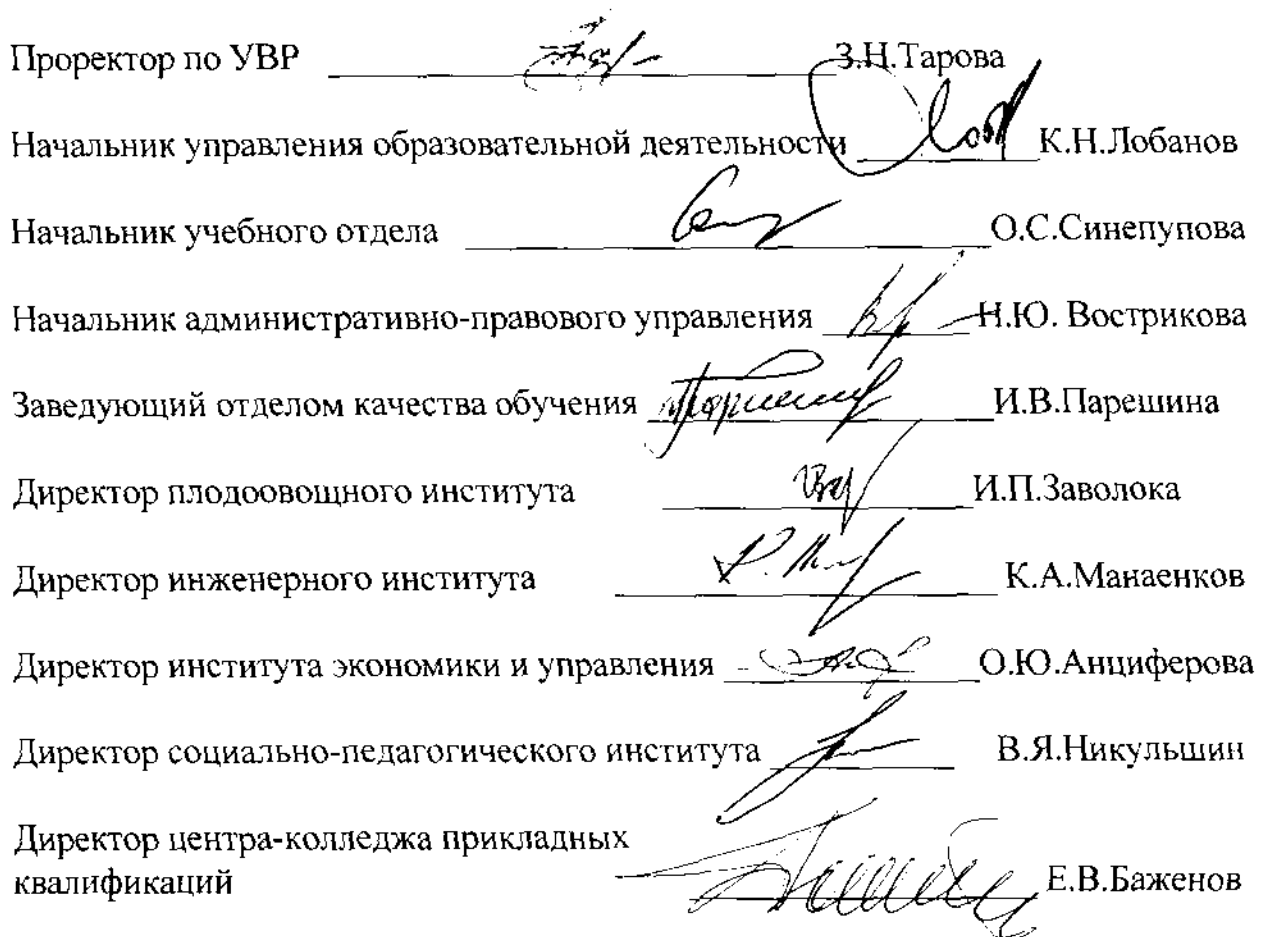 Проректор по УВР З.Н.Тарова
Начальник управления образовательной деятельности К.Н.Лобанов
Начальник учебного отдела О.С.Синепупова
Начальник административно-правового управления Н.Ю. Вострикова
Заведующий отделом качества обучения И.В.Парешина
Директор плодоовощного института И.П.Заволока
Директор инженерного института К.А.Манаенков
Директор института экономики и управления О.Ю.Анциферова
Директор социально-педагогического института В.Я.Никульшин
Директор центра-колледжа прикладных
квалификаций Е.В.Баженов